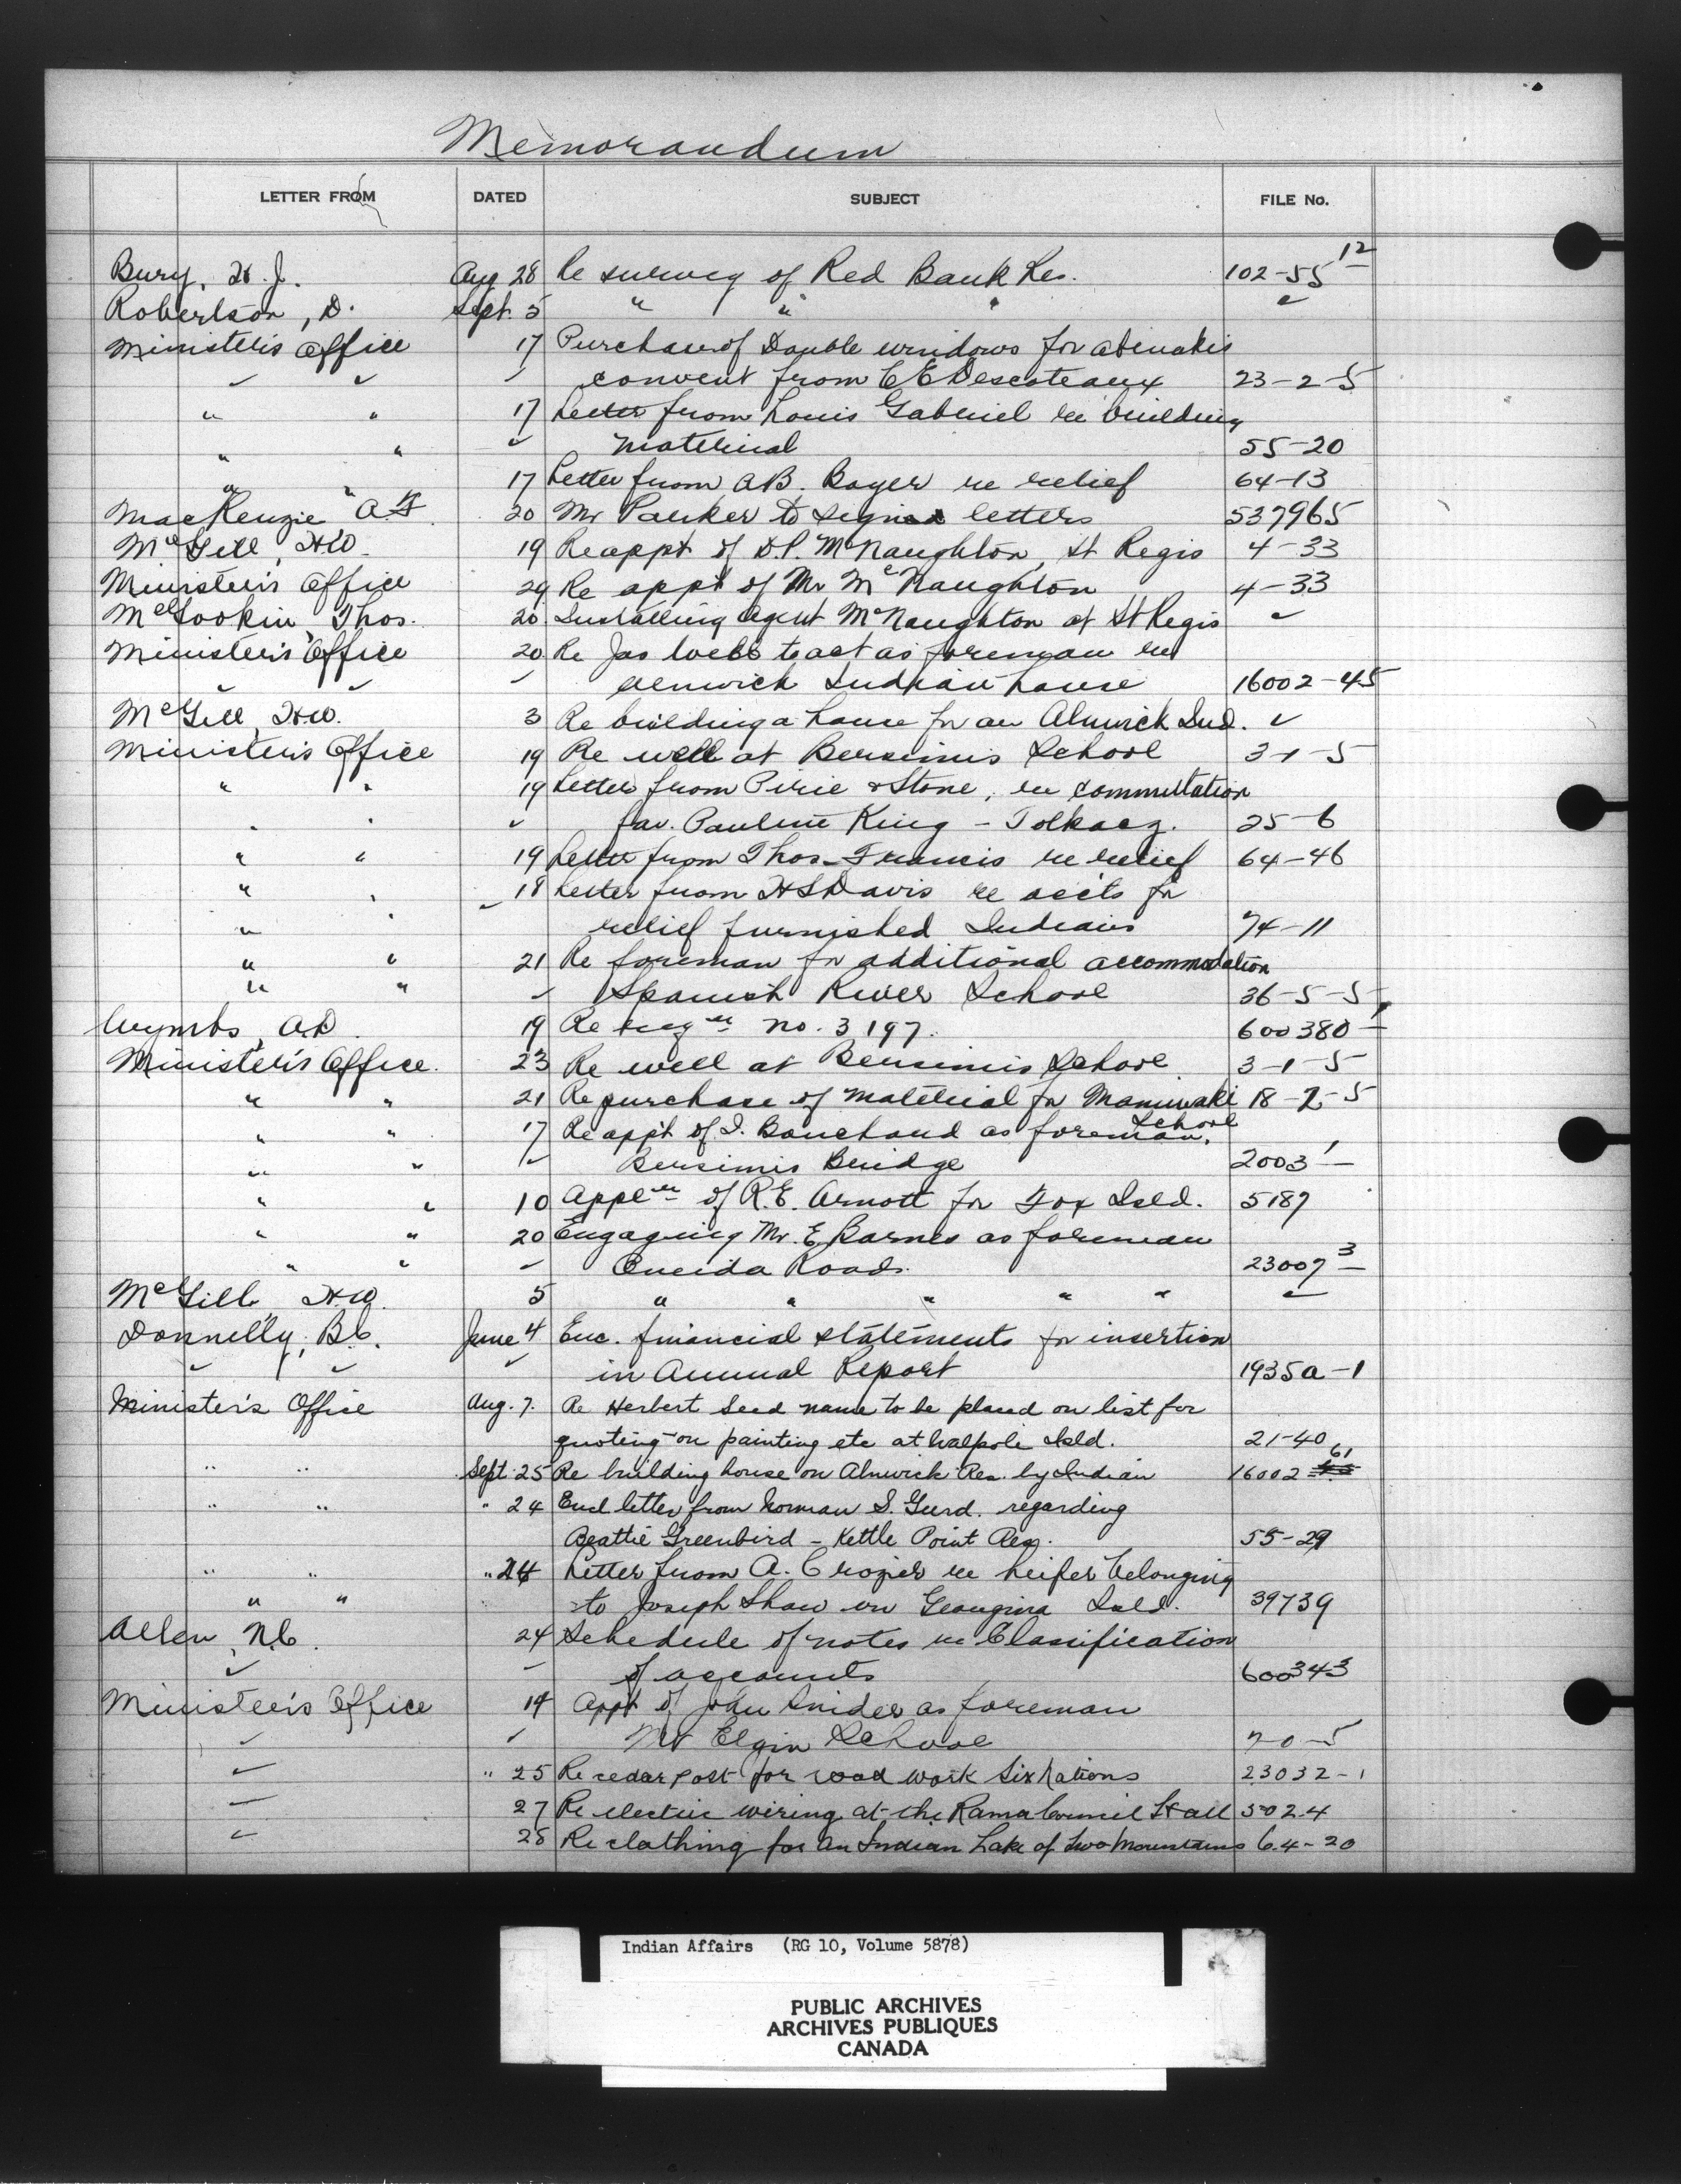 Memorandum
LETTER FROM DATED SUBJECT FILE No.
Bury, H. J. Aug 28 Re survey of Red Bank Res. 102-55 12
Robertson, D. Sept. 5 " " " "
Minister's Office 17 Purchase of Double windows for Abenakis
" " " convent from C E Descoteaux 23-2-5
" " 17 Letter from Louis Gabriel re building
" " " material 55-20
" " 17 Letter from A.B. Boyer re relief 64-13
MacKenzie A.F. 20 Mr Parker to sign letters 537965
McGill, H.W. 19 Re appt of D.P. McNaughton, St Regis 4-33
Minister's Office 29 Re appt of Mr McNaughton 4-33
McGookin Thos. 20 Installing Agent McNaughton at St Regis "
Minister's Office 20 Re Jas Webb to act as foreman re
" " " Alnwick Indian house 16002-45
McGill, H.W. 3 Re building a house for an Alnwick Ind. "
Minister's Office 19 Re well at Bersimis School 3-1-5
" " 19 Letter from Pirie & Stone, re commutation
" " " fav. Pauline King - Tolkacz. 25-6
" " 19 Letter from Thos. Francis re relief 64-46
" " 18 Letter from H S Davis re acc'ts for
" " " relief furnished Indians 74-11
" " 21 Re foreman for additional accommodation
" " " Spanish River School 36-5-5
Wymbs, A.D. 19 Re no. 3197. 600380-1
Minister's Office. 23 Re well at Bersimis School. 3-1-5
" " 21 Re purchase of material for Maniwaki 18-2-5
School
" " 17 Re app't of J. Bouchard as foreman,
" " " Bersimis Bridge 2003-1
" " 10 Applen of R.E. Arnott for Fox Isld. 5187
" " 20 Engaging Mr. E. Barnes as foreman
" " " Oneida Roads. 23007-3
McGill, H.W. 5 " " " " " "
Donnelly, B.C. June 4 Enc. financial statements for insertion
" " " in Annual Report 1935a-1
Minister's Office Aug. 7. Re Herbert Seed name to be placed on list for
quoting on painting etc at Walpole Isld. 21-40
" " Sept. 25 Re building house on Alnwick Res. by Indian 16002 61
" " " 24 Encl letter from Norman S. Gurd. regarding
Beattie Greenbird - Kettle Point Res. 55-29
" " " 24 Letter from A. Crozier re heifer belonging
" " to Joseph Shaw on Georgina Isld. 39739
Allen, N.C. 24 Schedule of notes re Classification
" " of accounts 600343
Minister's Office 14 Appt of John Snider as foreman
" " Mt Elgin School 20-5
" " 25 Re cedar post for road work Six Nations 23032-1
" 27 Re electric wiring at the Rama Council Hall 502-4
" 28 Re clothing for an Indian Lake of Two Mountains 64-20
Indian Affairs (RG 10, Volume 5878)
PUBLIC ARCHIVES
ARCHIVES PUBLIQUES
CANADA